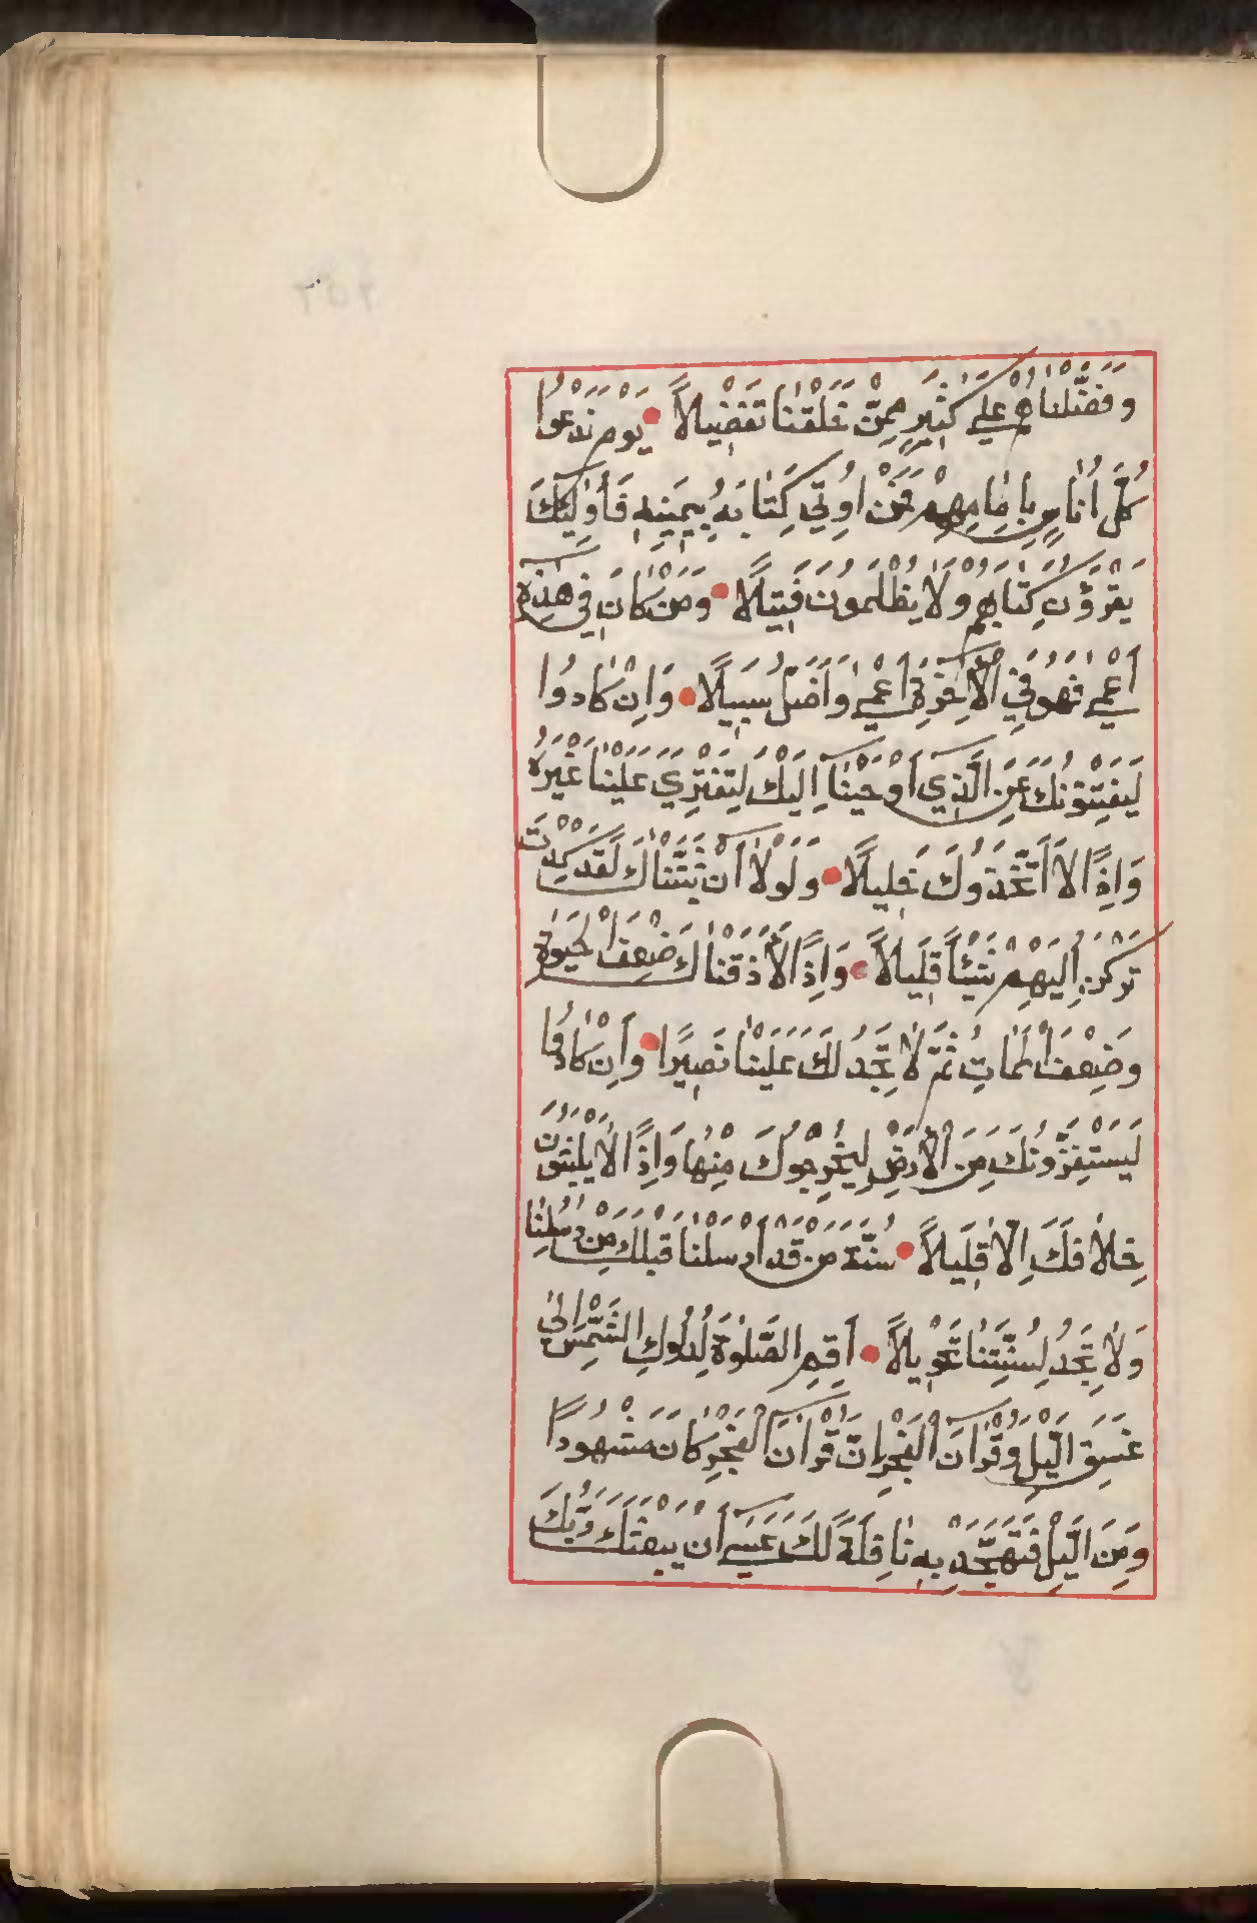 وَفَضَّلْنَاهُمْ عَلَى كَثِيرٍ مِمَّنْ خَلَقْنَا تَفْضِيلًا يَوْمَ نَدْعُوا
كُلَّ أُنَاسٍ بِإِمَامِهِمْ فَمَنْ أُوتِيَ كِتَابَهُ بِيَمِينِهِ فَأُولَٰئِكَ
يَقْرَؤُنَ كِتَابَهُمْ وَلَا يُظْلَمُونَ فَتِيلًا وَمَنْ كَانَ فِي هَٰذِهِ
أَعْمَى فَهُوَ فِي الْآخِرَةِ أَعْمَى وَأَضَلُّ سَبِيلًا وَإِنْ كَادُوا
لَيَفْتِنُونَكَ عَنِ الَّذِي أَوْحَيْنَا إِلَيْكَ لِتَفْتَرِيَ عَلَيْنَا غَيْرَهُ
وَإِذًا لَاتَّخَذُوكَ خَلِيلًا وَلَوْلَا أَنْ ثَبَّتْنَاكَ لَقَدْ كِدْتَ
تَرْكَنُ إِلَيْهِمْ شَيْئًا قَلِيلًا وَإِذًا لَأَذَقْنَاكَ ضِعْفَ الْحَيٰوةِ
وَضِعْفَ الْمَمَاتِ ثُمَّ لَا تَجِدُ لَكَ عَلَيْنَا نَصِيرًا وَإِنْ كَادُوا
لَيَسْتَفِزُّونَكَ مِنَ الْأَرْضِ لِيُخْرِجُوكَ مِنْهَا وَإِذًا لَا يَلْبَثُونَ
خِلَافَكَ إِلَّا قَلِيلًا سُنَّةَ مَنْ قَدْ أَرْسَلْنَا قَبْلَكَ مِنْ رُسُلِنَا
وَلَا تَجِدُ لِسُنَّتِنَا تَحْوِيلًا أَقِمِ الصَّلٰوةَ لِدُلُوكِ الشَّمْسِ إِلَى
غَسَقِ الَّيْلِ وَقُرْآنَ الْفَجْرِ إِنَّ قُرْآنَ الْفَجْرِ كَانَ مَشْهُودًا
وَمِنَ الَّيْلِ فَتَهَجَّدْ بِهِ نَافِلَةً لَكَ عَسَى أَنْ يَبْعَثَكَ رَبُّكَ